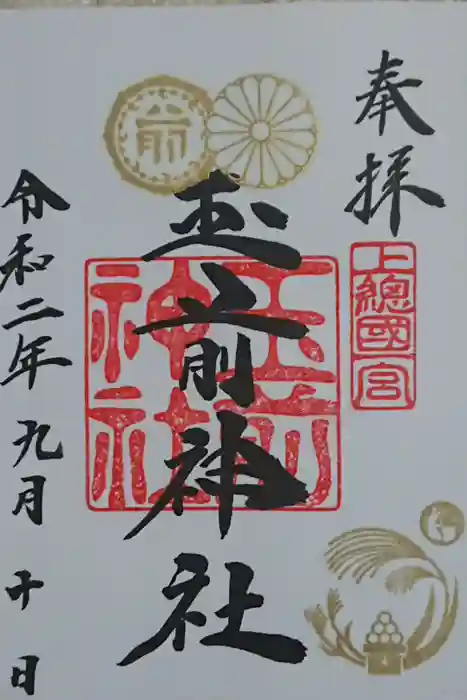 奉拝
上總國一宮
玉前神社
玉前神社
令和二年九月十日